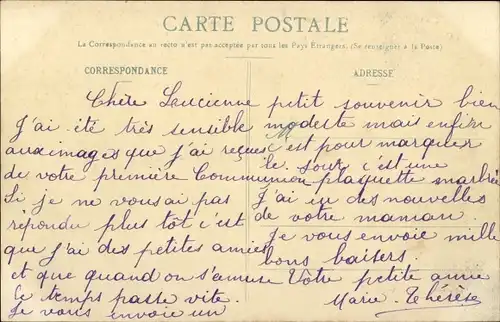 CARTE POSTALE
La Correspondance au recto n'est pas acceptée par tous les Pays Etrangers. (Se renseigner à la Poste)
CORRESPONDANCE
Chère Lucienne
J'ai été très sensible
aux images que j'ai reçues
de votre première Communion
Si je ne vous ai pas
répondu plus tôt c'est
que j'ai des petites amies
et que quand on s'amuse
le temps passe vite.
Je vous envoie un
ADRESSE
petit souvenir bien
modeste mais enfin
c'est pour marquer
le jour c'est une
plaquette marbrée
J'ai eu des nouvelles
de votre maman.
Je vous envoie mille
bons baisers.
Votre petite amie
Marie-Thérèse